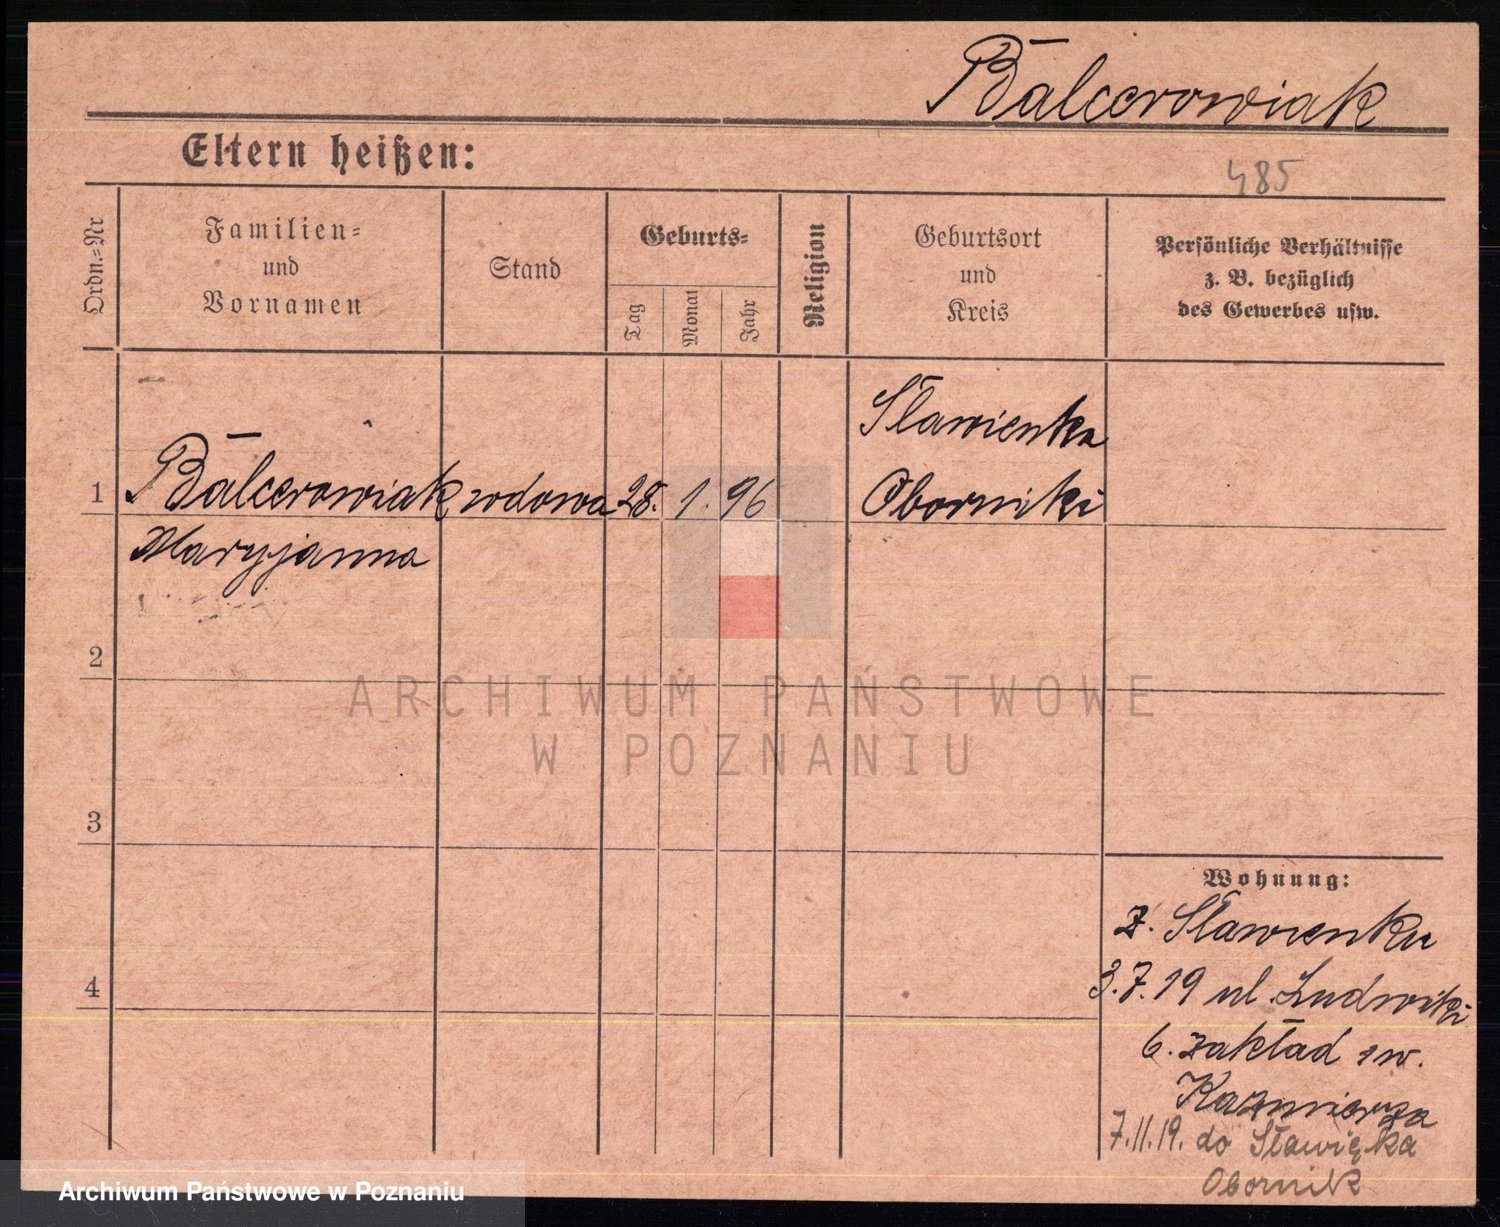 Balcerowiak
Eltern heißen:
485
Ordn.=Nr
Familien=
und
Vornamen
Stand
Geburts=
Tag
Monat
Jahr
Religion
Geburtsort
und
Kreis
Persönliche Verhältnisse
z. B. bezüglich
des Gewerbes usw.
Sławienka
1 Balcerowiak wdowa 28. 1. 96 Oborniki
Maryjanna
2
3
4
Wohnung:
z. Sławienka
3.7.19 ul. Ludwiki
6. zakład św.
Kazmierza
7.11.19. do Sławięka
Obornik
ARCHIWUM PAŃSTWOWE
W POZNANIU
Archiwum Państwowe w Poznaniu